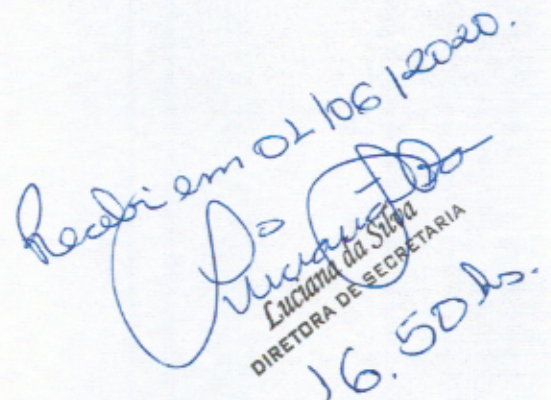 Recebi em 02/06/2020.
Luciana da Silva
DIRETORA DE SECRETARIA
16.50 hs.